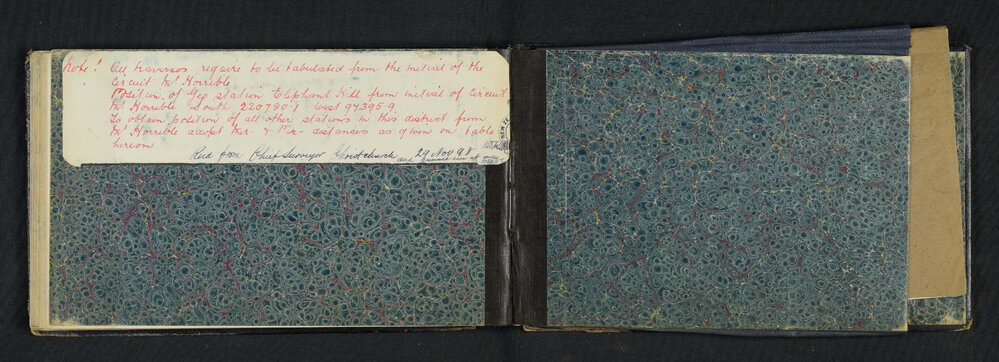 Note! All traverses require to be tabulated from the initial of the
Circuit Mt Horrible
Position of Geo station Elephant Hill from initial of Circuit
Mt Horrible South 220790.1 West 97395.9
To obtain position of all other stations in this district from
Mt Horrible adopt Mer- & Per- distances as given on table
hereon
Recd from Chief Surveyor Christchurch 29 Nov 98
and